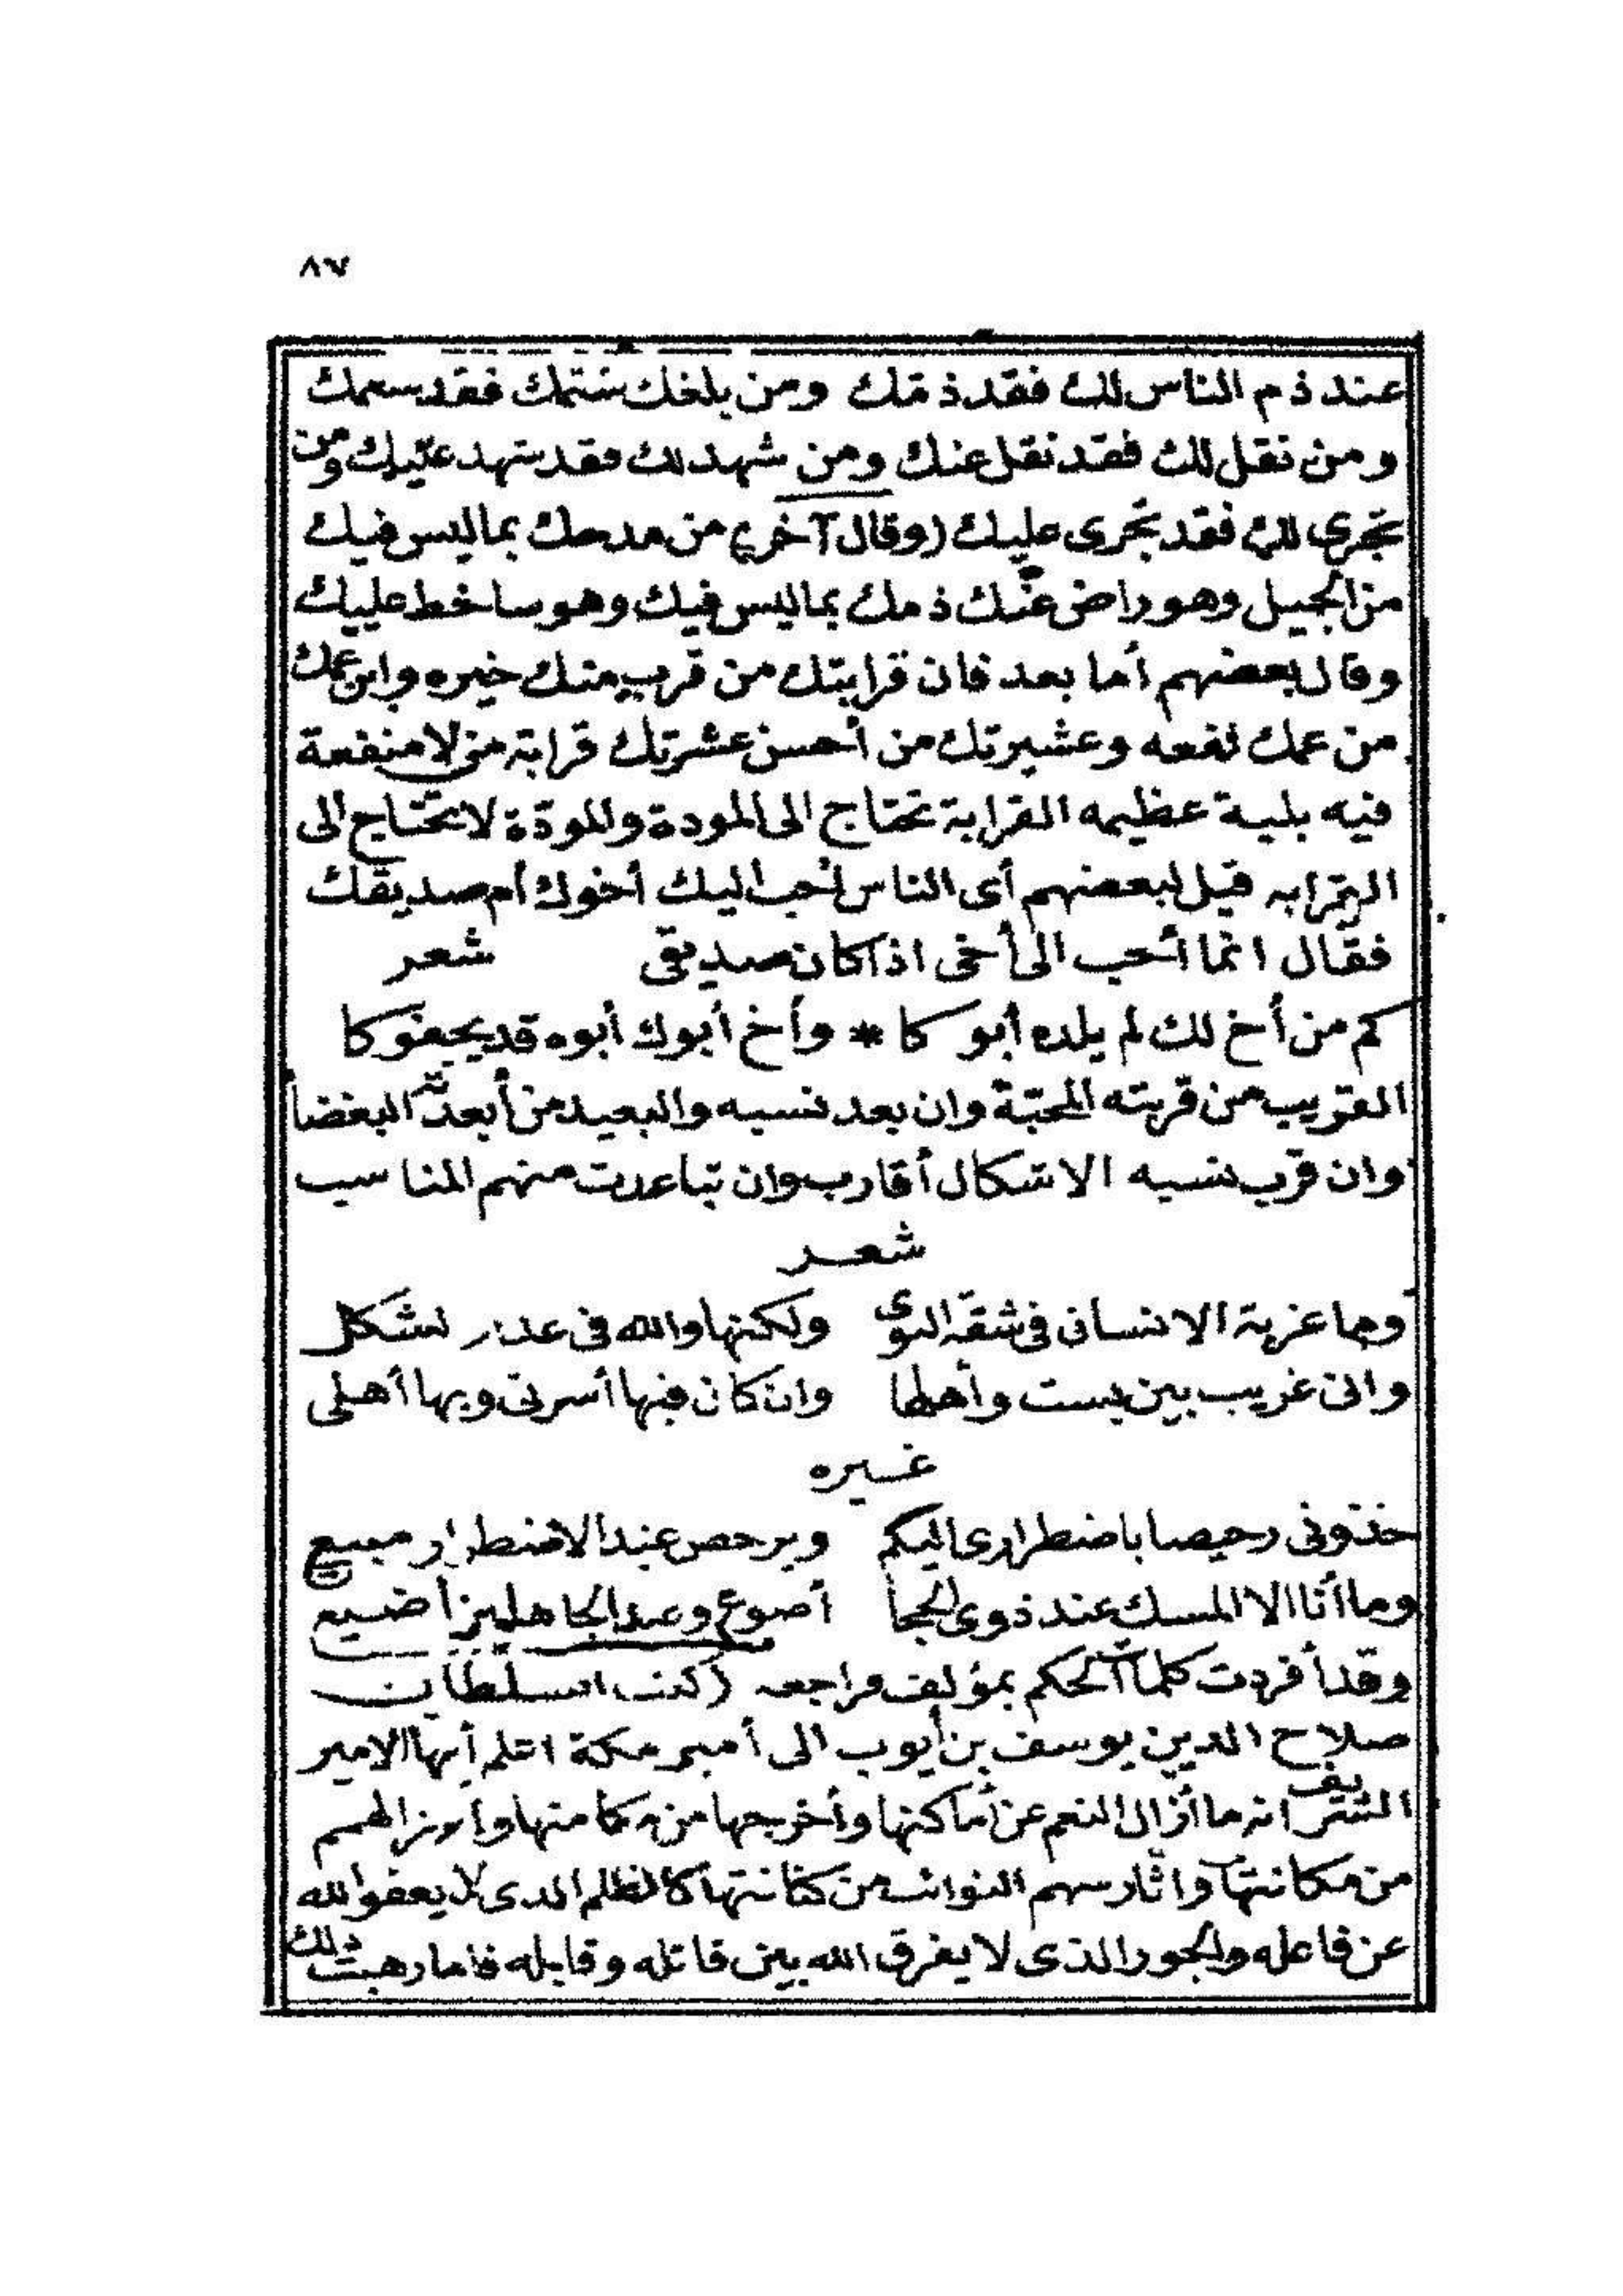 ٨٧
عند ذم الناس لك فقد ذمّك ومن بلغك شتمك فقد شتمك
ومن نقل لك فقد نقل عنك ومن شهد لك فقد شهد عليك ومن
تجرى لك فقد تجرى عليك (وقال آخر) من مدحك بما ليس فيك
من الجميل وهو راض عنك ذمك بما ليس فيك وهو ساخط عليك
وقال بعضهم أما بعد فان قرابتك من قرب منك خيره وابن عمك
من عمك نفعه وعشيرتك من أحسن عشرتك قرابة من لا منفعة
فيه بلية عظيمه القرابة تحتاج الى المودة والمودّة لا تحتاج الى
القرابه قيل لبعضهم أى الناس أحب اليك أخوك أم صديقك
فقال انما أحب الى أخى اذا كان صديقى شعر
كم من أخ لك لم يلده أبوكا * وأخ أبوك أبوه قد يجفوكا
القريب من قربته المحبّة وان بعد نسبه والبعيد من أبعدته البغضا
وان قرب نسبه الاشكال أقارب وان تباعدت منهم المناسب
شعر
وما غربة الانسان فى شقة النوى ولكنها والله فى عدم الشكل
وانى غريب بين بست وأهلها وان كان فيها أسرتى وبها أهلى
غيره
خذونى رخيصا باضطرارى اليكم ويرخص عند الاضطرار مبيع
وما أنا الا المسك عند ذوى الحجا أضوع وعند الجاهلين أضيع
وقد أفردت كلمات الحكم بمؤلف فراجعه (كتب السلطان
صلاح الدين يوسف بن أيوب الى أمير مكة اعلم أيها الامير
الشريف انه ما أزال النعم عن أماكنها وأخرجها من مكامنها وأبرز الهمم
من مكانتها واثار سهم النوائب من كنانتها كالظلم الذى لا يعفو الله
عن فاعله والجور الذى لا يفرق الله بين قاتله وقابله فاما رهبت ذلك